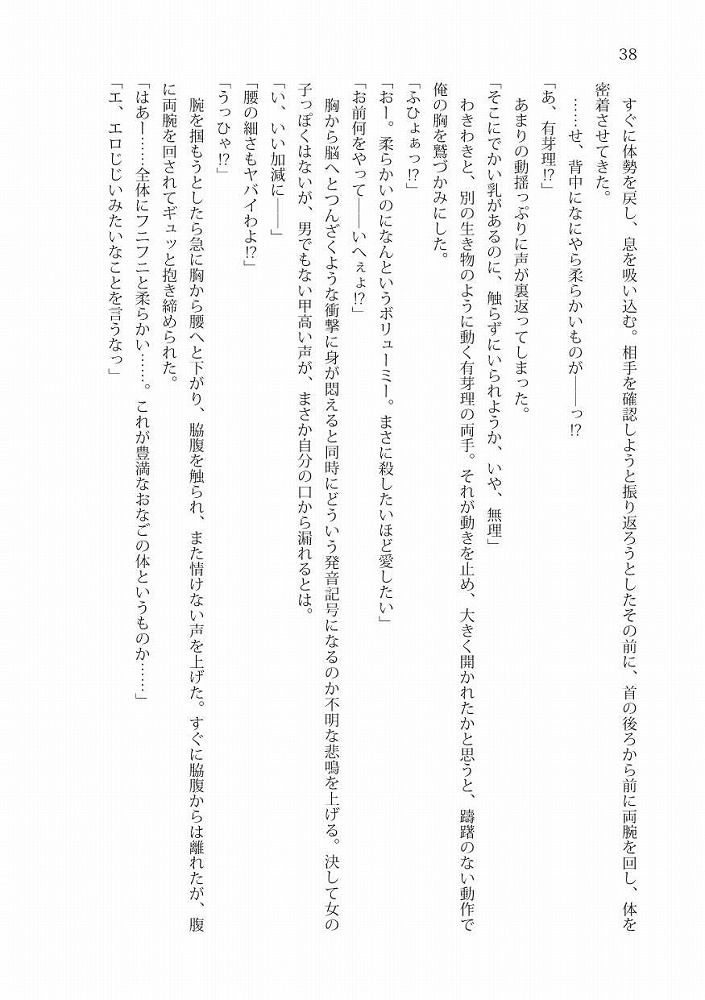 38
すぐに体勢を戻し、息を吸い込む。相手を確認しようと振り返ろうとしたその前に、首の後ろから前に両腕を回し、体を
密着させてきた。
……せ、背中になにやら柔らかいものが――っ⁉
「あ、有芽理⁉」
あまりの動揺っぷりに声が裏返ってしまった。
「そこにでかい乳があるのに、触らずにいられようか、いや、無理」
わきわきと、別の生き物のように動く有芽理の両手。それが動きを止め、大きく開かれたかと思うと、躊躇のない動作で
俺の胸を鷲づかみにした。
「ふひょぁっ⁉」
「おー。柔らかいのになんというボリューミー。まさに殺したいほど愛したい」
「お前何をやって――いへぇょ⁉」
胸から脳へとつんざくような衝撃に身が悶えると同時にどういう発音記号になるのか不明な悲鳴を上げる。決して女の
子っぽくはないが、男でもない甲高い声が、まさか自分の口から漏れるとは。
「い、いい加減に――」
「腰の細さもヤバイわよ⁉」
「うっひゃ⁉」
腕を掴もうとしたら急に胸から腰へと下がり、脇腹を触られ、また情けない声を上げた。すぐに脇腹からは離れたが、腹
に両腕を回されてギュッと抱き締められた。
「はあー……全体にフニフニと柔らかい……。これが豊満なおなごの体というものか……」
「エ、エロじじいみたいなことを言うなっ」